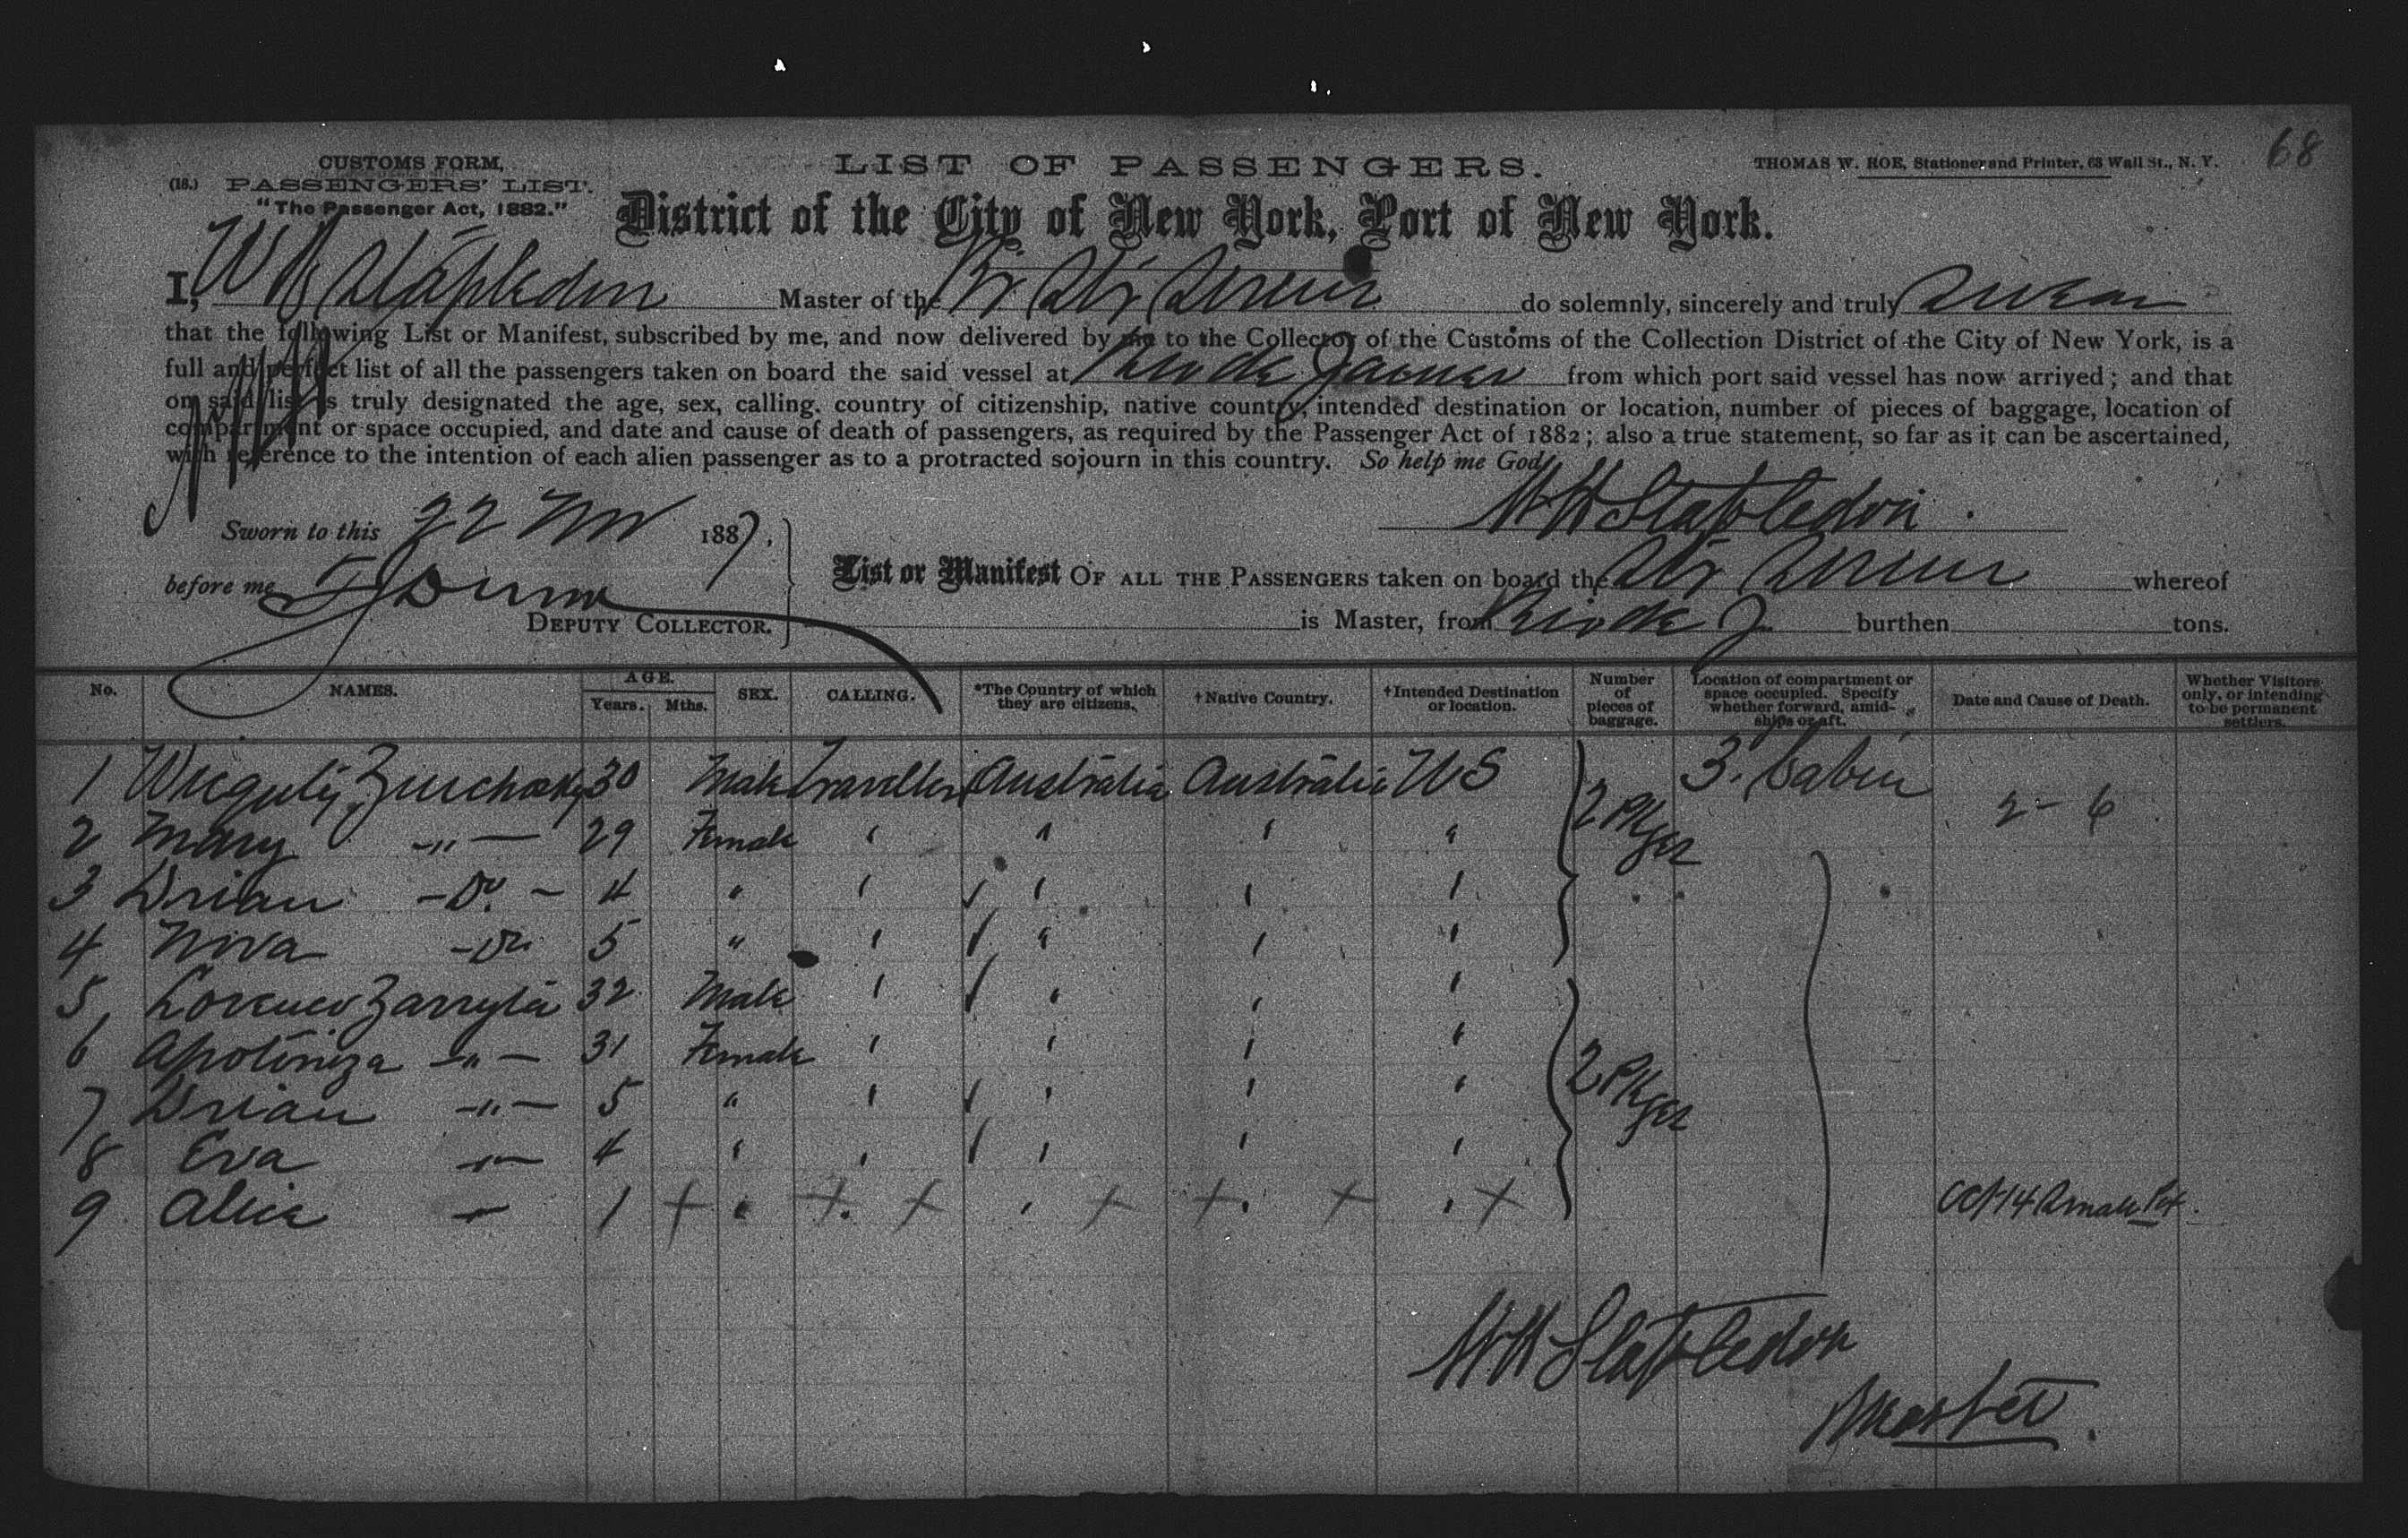 68
CUSTOMS FORM,
(18.) PASSENGERS' LIST.
"The Passenger Act, 1882."
LIST OF PASSENGERS.
THOMAS W. ROE, Stationer and Printer, 63 Wall St., N. Y.
District of the City of New York, Port of New York.
I, W H Stapledon Master of the Br Str do solemnly, sincerely and truly swear
that the following List or Manifest, subscribed by me, and now delivered by me to the Collector of the Customs of the Collection District of the City of New York, is a
full and perfect list of all the passengers taken on board the said vessel at Rio de Janeiro from which port said vessel has now arrived; and that
on said list is truly designated the age, sex, calling, country of citizenship, native country, intended destination or location, number of pieces of baggage, location of
compartment or space occupied, and date and cause of death of passengers, as required by the Passenger Act of 1882; also a true statement, so far as it can be ascertained,
with reference to the intention of each alien passenger as to a protracted sojourn in this country. So help me God
W H Stapledon.
Sworn to this 22 Nov 1887.
before me
DEPUTY COLLECTOR.
List or Manifest OF ALL THE PASSENGERS taken on board the Str whereof
is Master, from Rio de J burthen tons.
No. NAMES. AGE. Years. Mths. SEX. CALLING. *The Country of which they are citizens. †Native Country. †Intended Destination or location. Number of pieces of baggage. Location of compartment or space occupied. Specify whether forward, amidships or aft. Date and Cause of Death. Whether Visitors only, or intending to be permanent settlers.
1 30 Male Traveller Australia Australia US 2 Pkges 3. Cabin 2 - 6
2 Mary -"- 29 Female " " " "
3 -Do.- 4 " " " " "
4 -Do 5 " " " " "
5 32 Male " " " "
6 -"- 31 Female " " " " 2 Pkges
7 -"- 5 " " " " "
8 Eva -"- 4 " " " " "
9 Alice -"- 1 + " + + " + + + " + Oct 14
W H Stapledon
Master.